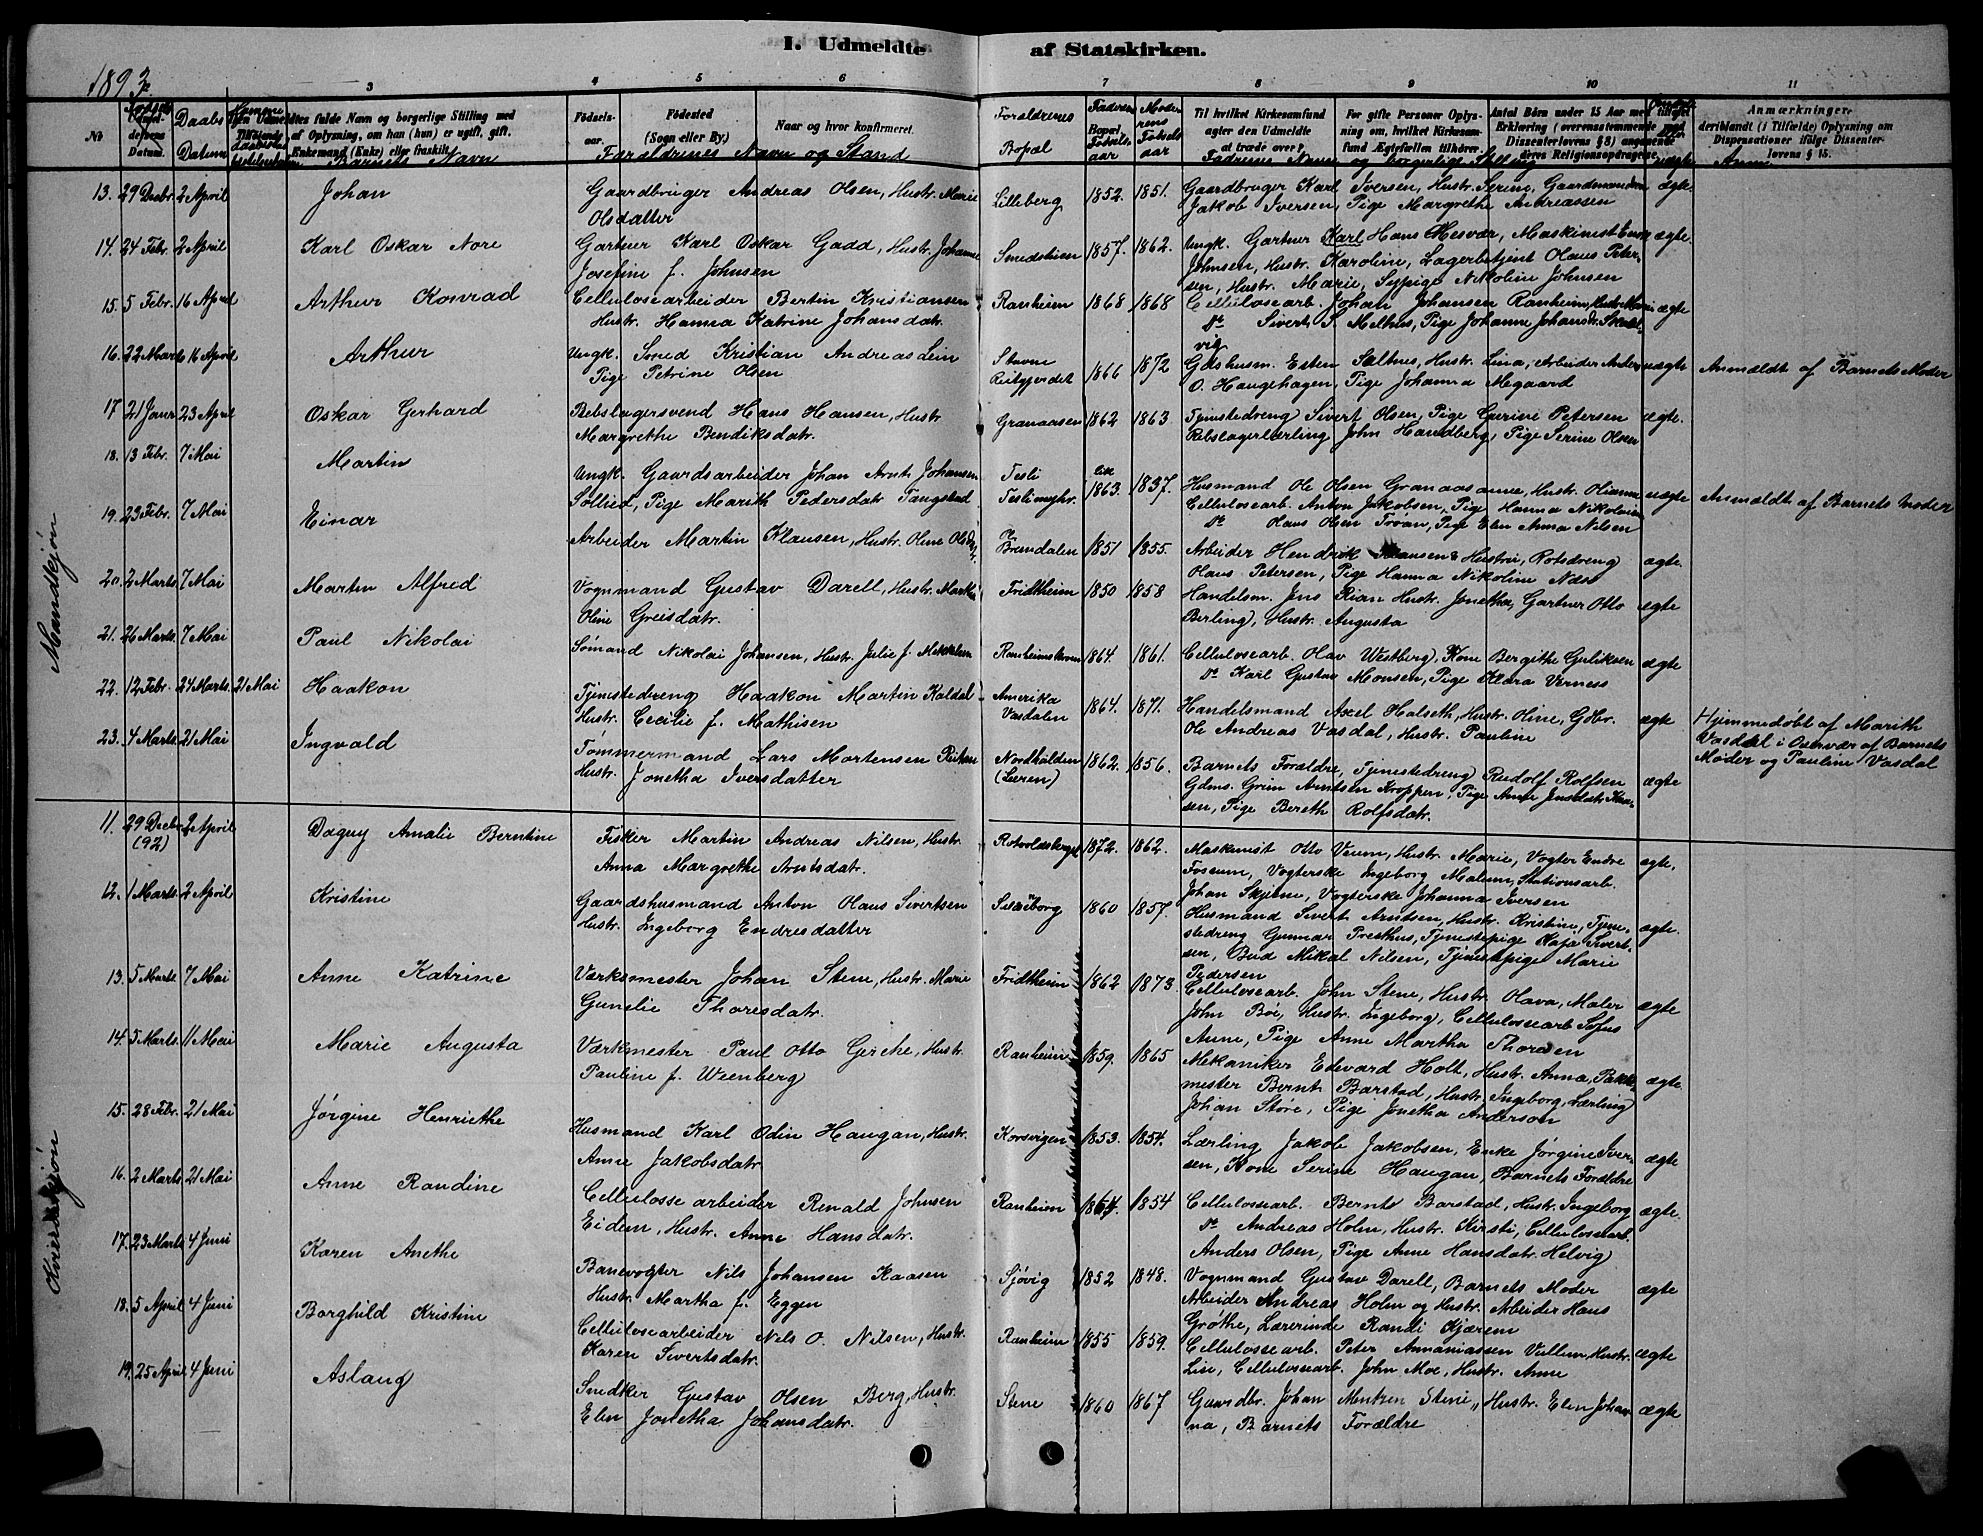 I. Udmeldte af Statskirken.
1893.
3 4 5 6 7 8 9 10 11
Daabs Datum
Barnets Navn
Fødselsaar.
Fødested (Sogn eller By.)
Naar og hvor konfirmeret.
Forældrenes Navn og Stand
Forældrenes Bopæl
Til hvilket Kirkesamfund agter den Udmeldte at træde over?
For gifte Personer Oplysning om, hvilket Kirkesamfund Ægtefællen tilhører.
Antal Børn under 15 Aar med tilføiet Erklæring (overensstemmende med Dissenterlovens § 8) angaaende deres Religionsopdragelse.
Anmærkninger, deriblandt (i Tilfælde) Oplysning om Dispensationer ifølge Dissenterlovens § 15.
Mandkjøn
13. 29 Decbr. 2 April Johan Gaardbruger Andreas Olsen, Hustr. Marie Lilleberg 1852. 1851. Gaardbruger Karl Iversen, Hustr. Serine, Gaardmand ægte
Olsdatter Jakob Iversen, Pige Margrethe Andreassen
14. 24 Febr. 2 April Karl Oskar Nore Gartner Karl Oskar Gadd, Hustr. Johanne Smedstuen 1857. 1862. Ungk. Gartner Karl Hans Mesvær, Maskinist ægte.
Josefine f. Johnsen Johnsen, Hustr. Karoline, Lagerbetjent Olaus Peter-
sen, Hustr. Marie, Sypige Nikoline Johnsen
15. 5 Febr. 16 April Arthur Konrad Cellulosearbeider Bertin Kristiansen Ranheim 1868 1868 Cellulosearb. Johan Johansen Ranheim, Hustr. ægte
Hustr. Hanna Katrine Johansdatr. Do Sivert S. Melhus, Pige Johanne Johansdr.
16. 22 Marts 16 April Arthur Ungk. Smed Kristian Andreas Lein Stavne 1866 1872 Gdshusm. Esten Saltnes, Hustr. Lina, Arbeider uægte Anmældt af Barnets Moder
Pige Petrine Olsen O. Haugehagen, Pige Johanna Megaard
17 21 Janr. 23 April Oskar Gerhard Rebslagersvend Hans Hansen, Hustr. Granaasen 1862 1863 Tjenestedreng Sivert Olsen, Pige Gurine Petersen ægte.
Margrethe Bendiksdatr. Rebslagerlærling John Handberg, Pige Serine Olsen
18. 13 Febr. 7 Mai Martin Ungk. Gaardsarbeider Johan Arnt Johansen Tesli 1863. 1837. Husmand Ole Olsen Granaasanne, Hustr. Olianna uægte Anmældt af Barnets Moder
Sollied, Pige Marith Pedersdatr. Tangstad Teslimyhr. Cellulosearb. Anton Jakobsen, Pige Hanna Nikolaisen
Do Olaus Olsen Trøan, Pige Elen Anna Nilsen
19. 23 Febr. 7 Mai Einar Arbeider Martin Klausen, Hustr. Oline Olsdtr. Bromdalen 1851 1855. Arbeider Hendrik Hansen Hustru, Rotsdreng ægte.
Olaus Petersen, Pige Hanna Nikoline Næss
20. 2 Marts 7 Mai Martin Alfred Vognmand Gustav Darell, Hustr. Fridtheim 1850 1858 Handelsm. Jens Rian Hustr. Jonetha, Gartner Otto ægte
Oline Greisdatr. Berling, Hustr. Augusta
21. 26 Marts. 7 Mai Paul Nikolai Sømand Nikolai Johansen, Hustr. Julie f. Mikkelsen 1864. 1861. Cellulosearb. Olav Westberg, Kone Bergithe Guliksen ægte
Do Karl Gustav Monsen, Pige Klara Verness
22. 12 Febr. 24 Marts. 21 Mai Haakon Tjenestedreng Haakon Martin Kaldal Amerika 1864. 1871. Handelsmand Axel Halseth, Hustr. Oline, Gdbr. ægte Hjemmedøbt af Marith
Hustr. Cecilie f. Mathisen Vasdalen Ole Andreas Vasdal, Hustr. Pauline Vasdal i Overvær af Barnets
Moder og Pauline Vasdal
23. 4 Marts. 21 Mai Ingvald Tømmermand Lars Mortensen Nordhalden 1862. 1856. Barnets Forældre, Tjenestedreng Rudolf Rolfsen ægte
Hustr. Jonetha Iversdatter (Leren) Gdms. Grim Arntsen Kroppen, Pige Anne
sen, Pige Bereth Rolfsdatr.
Kvindekjøn
11. 29 Decbr. (92) 2 April Dagny Amalie Berntine Fisker Martin Andreas Nilsen, Hustr. Rotvoldsberget 1872. 1862. Maskinist Otto Veum, Hustr. Marie, Vogter Endre ægte.
Anna Margrethe Arntsdatr. Fossum, Vogterske Ingeborg Malum, Stationsarb.
Johan Skjelne, Vogterske Johanna Iversen
12. 1 Marts. 2 April Kristine Gaardshusmand Anton Olaus Sivertsen 1860 1857. Husmand Sivert Arntsen, Hustr. Kristine, Tjene- ægte.
Hustr. Ingeborg Endresdatter stedreng Gunnar Presthus, Tjenestepige Kaja Sivert-
sen, Bud Mikal Nilsen, Tjenestepige Marie
Pedersen
13. 5 Marts. 7 Mai Anne Katrine Værksmester Johan Stene, Hustr. Marie Fridtheim 1862 1873. Cellulosearb. John Stene, Hustr. Olava, Maler ægte
Gunelie Thoresdatr. John Bøe, Hustr. Ingeborg, Cellulosearb Sofus
Anne, Pige Anne Martha Thoresen
14. 5 Marts. 11 Mai Marie Augusta Værkmester Paul Otto Girche, Hustr. Ranheim 1859. 1865 Mekaniker Edevard Holt, Hustr. Anna, ægte.
Pauline f. Weenberg mester Bernt Barstad, Hustr. Ingeborg, Lærling
Johan Støre, Pige Jonetha Anderson
15. 28 Febr. 21 Mai Jørgine Henriethe Husmand Karl Odin Haugan, Hustr. Korsvigen 1853. 1854. Lærling Jakob Jakobsen, Enke Jørgine Iver- ægte
Anne Jakobsdatr. sen, Kone Serine Haugan, Barnets Forældre
16. 2 Marts. 21 Mai Anne Randine Cellulosse arbeider Renald Johnsen Ranheim 1864. 1854 Cellulosearb. Bernt Barstad, Hustr. Ingeborg ægte.
Eidem, Hustr. Anne Hansdatr. Do Andreas Holm, Hustr. Kirsti, Cellulosearb.
Anders Olsen, Pige Anne Hansdatr. Helvig
17. 23 Marts. 4 Juni Karen Anethe Banevogter Nils Johansen Kaasen Sjøvig 1852 1848. Vognmand Gustav Darell, Barnets Moder ægte
Hustr. Martha f. Eggen Arbeider Andreas Holm og Hustr. Arbeider Hans
Grøthe, Lærerinde Randi Kjærem
18. 5 April 4 Juni Borghild Kristine Cellulosearbeider Nils O. Nilsen, Hustr. Ranheim 1855 1859. Cellulossearb. Peter Annaniassen Vullum, Hustr. ægte
Karen Sivertsdatr. Lin, Cellulossearb. John Moe, Hustr. Anne
19. 25 April 4 Juni Aslaug Snedker Gustav Olsen Berg, Hustr. Stene 1860 1867 Gaardbr. Johan Mentzen Stene, Hustr. Elen Johan- ægte
Elen Jonetha Johansdatr. na, Barnets Forældre